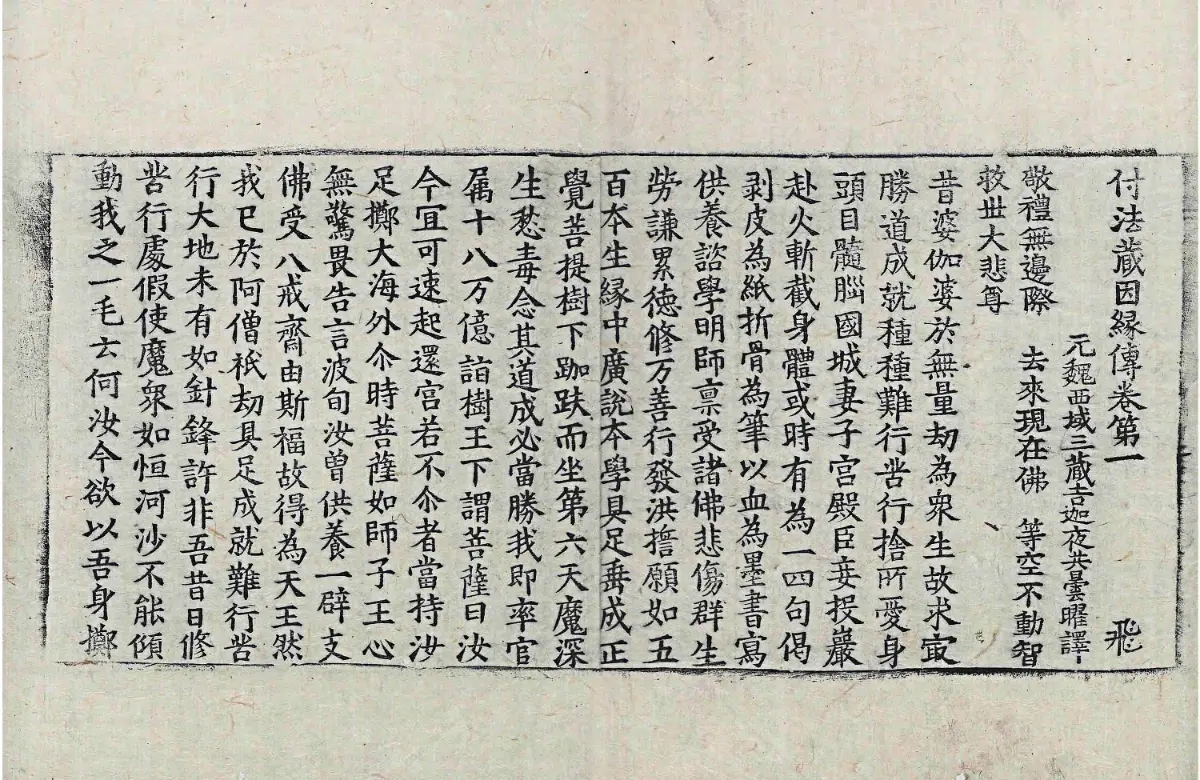 付法藏因縁傳卷第一 飛
元魏西域三藏吉迦夜共曇曜譯
敬禮無邊際 去來現在佛 等空不動智
救丗大悲尊
昔婆伽婆於無量劫為衆生故求㝡
勝道成就種種難行苦行捨所愛身
頭目髓𦛁國城妻子宮殿臣妾投巖
赴火斬截身體或時有為一四句偈
剥皮為紙折骨為筆以血為墨書寫
供養諮學明師禀受諸佛悲傷群生
勞謙累德修万善行發洪誓願如五
百本生縁中廣說本學具足垂成正
覺菩提樹下跏趺而坐第六天魔深
生愁毒念其道成必當勝我即率官
属十八万億詣樹王下謂菩薩曰汝
今宜可速起還宮若不尒者當持汝
足擲大海外尒時菩薩如師子王心
無驚畏告言波旬汝曽供養一辟支
佛受八戒齋由斯福故得為天王然
我已於阿僧祇劫具足成就難行苦
行大地未有如針鋒許非吾昔日修
苦行處假使魔衆如恒河沙不能傾
動我之一毛云何汝今欲以吾身擲